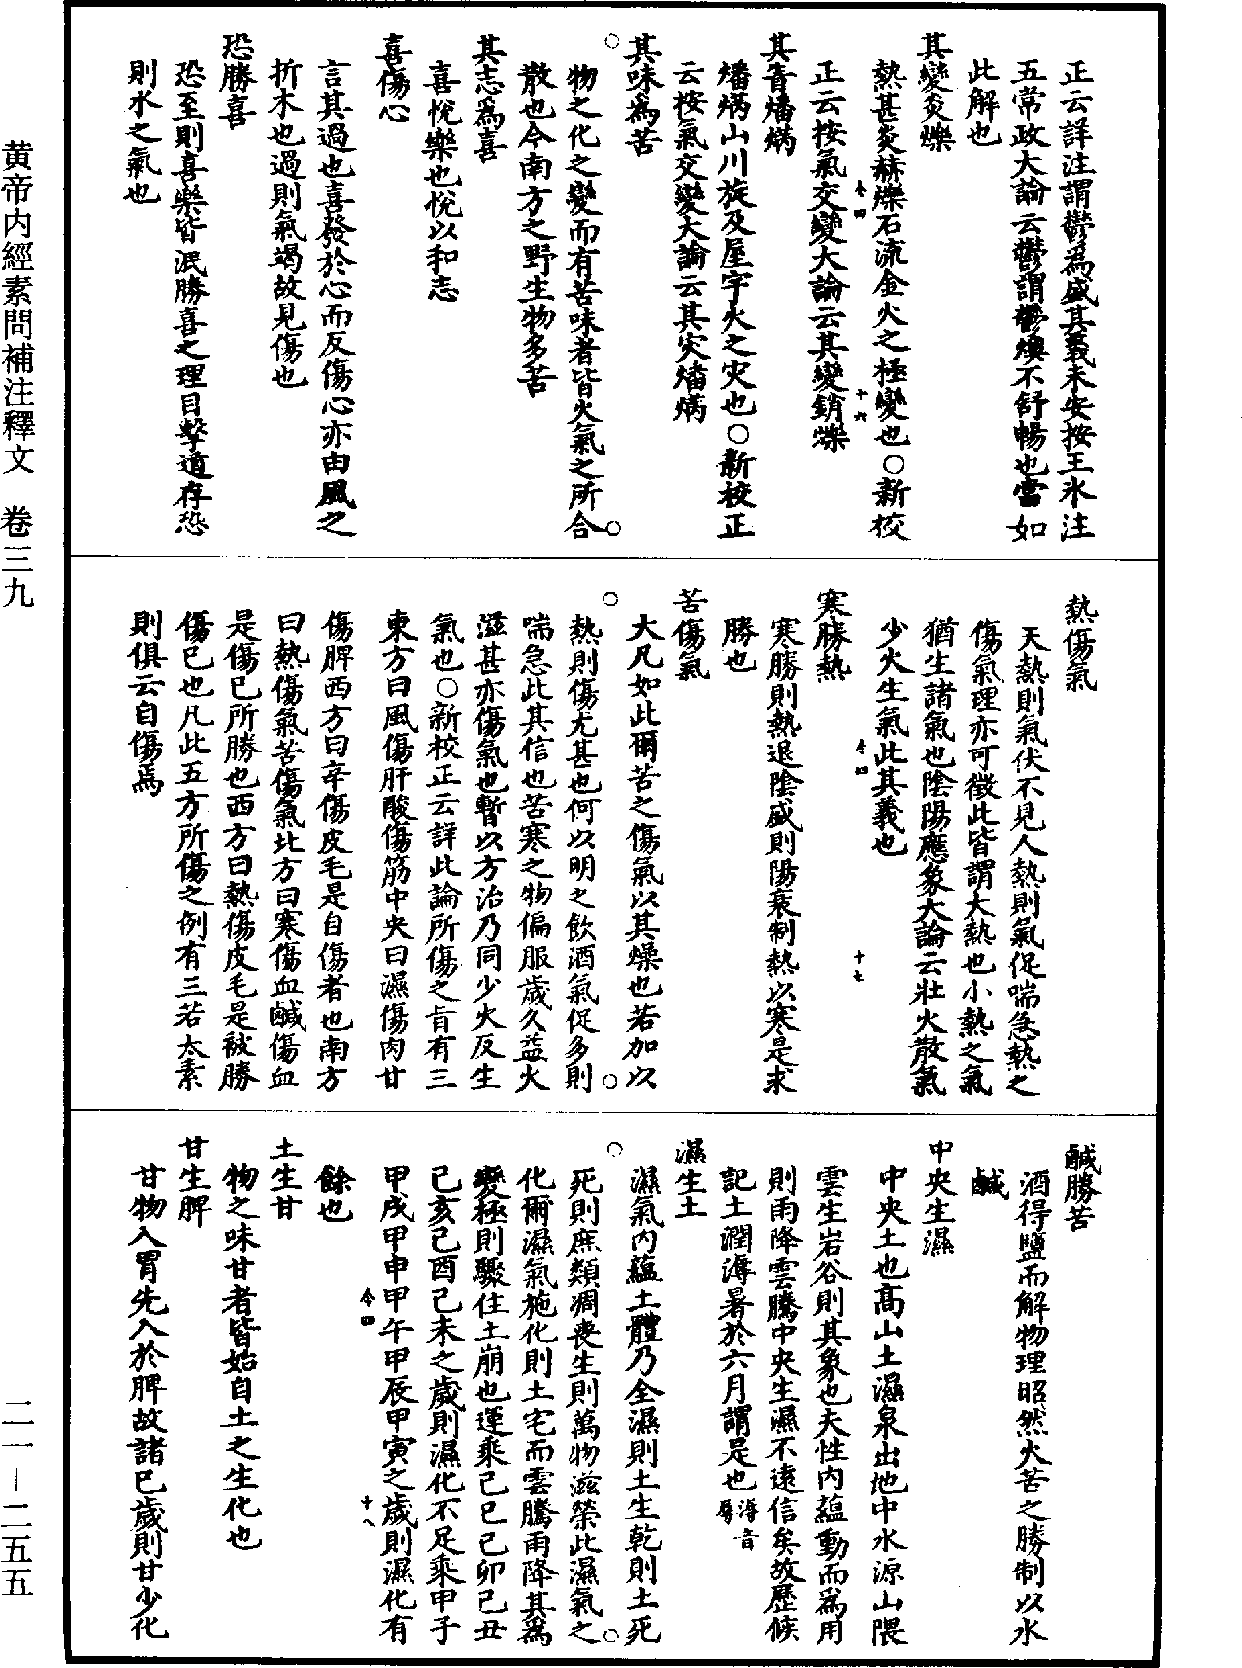 正云詳注謂鬱爲盛其義未安按王冰注
五常政大論云鬱謂鬱燠不舒暢也當如
此解也
其變炎爍
熱甚炎赫爍石流金火之極變也○新校
正云按氣交變大論云其變銷爍
其眚燔焫
燔焫山川旋及屋宇火之灾也○新校正
云按氣交變大論云其灾燔焫
其味爲苦
物之化之變而有苦味者皆火氣之所合
散也今南方之野生物多苦
其志爲喜
喜悅樂也悅以和志
喜傷心
言其過也喜發於心而反傷心亦由風之
折木也過則氣竭故見傷也
恐勝喜
恐至則喜樂皆泯勝喜之理目擊道存恐
則水之氣也
熱傷氣
天熱則氣伏不見人熱則氣促喘急熱之
傷氣理亦可徵此皆謂大熱也小熱之氣
猶生諸氣也陰陽應象大論云壯火散氣
少火生氣此其義也
寒勝熱
寒勝則熱退陰盛則陽衰制熱以寒是求
勝也
苦傷氣
大凡如此爾苦之傷氣以其燥也若加以
熱則傷尤甚也何以明之飲酒氣促多則
喘急此其信也苦寒之物偏服歲久益火
滋甚亦傷氣也暫以方治乃同少火反生
氣也○新校正云詳此論所傷之旨有三
東方曰風傷肝酸傷筋中央曰濕傷肉甘
傷脾西方曰辛傷皮毛是自傷者也南方
曰熱傷氣苦傷氣北方曰寒傷血鹹傷血
是傷已所勝也西方曰熱傷皮毛是被勝
傷已也凡此五方所傷之例有三若太素
則俱云自傷焉
鹹勝苦
酒得鹽而解物理昭然火苦之勝制以水
鹹
中央生濕
中央土也高山土濕泉出地中水源山隈
雲生岩谷則其象也夫性內蘊動而爲用
則雨降雲騰中央生濕不遠信矣故歷候
記土潤溽暑於六月謂是也溽音辱
濕生土
濕氣內蘊土體乃全濕則土生乾則土死
死則庶類凋喪生則萬物滋榮此濕氣之
化爾濕氣施化則土宅而雲騰雨降其爲
變極則驟住土崩也運乘己巳己卯己丑
己亥己酉己未之歲則濕化不足乘甲子
甲戌甲申甲午甲辰甲寅之歲則濕化有
餘也
土生甘
物之味甘者皆始自土之生化也
甘生脾
甘物入胃先入於脾故諸已歲則甘少化
黄帝内經素問補注釋文　卷三九
二一－二五五